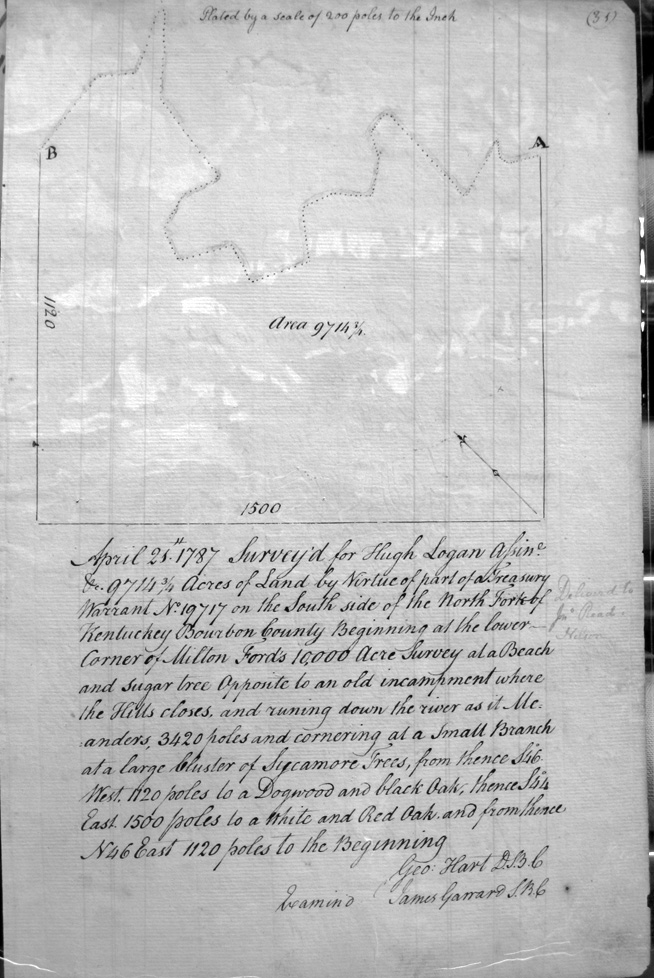 Plated by a scale of 200 poles to the Inch
(31)
B
A
1120
Area 9714¾
1500
April 21st 1787 Survey'd for Hugh Logan Assine
&c. 9714¾ Acres of Land by Virtue of part of a Treasury
Warrant No 19717 on the South side of the North Fork of
Kentuckey Bourbon County Beginning at the lower
Corner of Milton Fords 10,000 Acre Survey at a Beach
and sugar tree Opposite to an old incampment where
the Hills closes, and runing down the river as it Me-
:anders, 3420 poles and cornering at a Small Branch
at a large Cluster of Sycamore Trees, from thence S46
West. 1120 poles to a Dogwood and black Oak, thence S44
East 1500 poles to a White and Red Oak and from thence
N46 East 1120 poles to the Beginning
Geo: Hart D.S.B.C
Examind James Garrard S.B.C
Delivered to